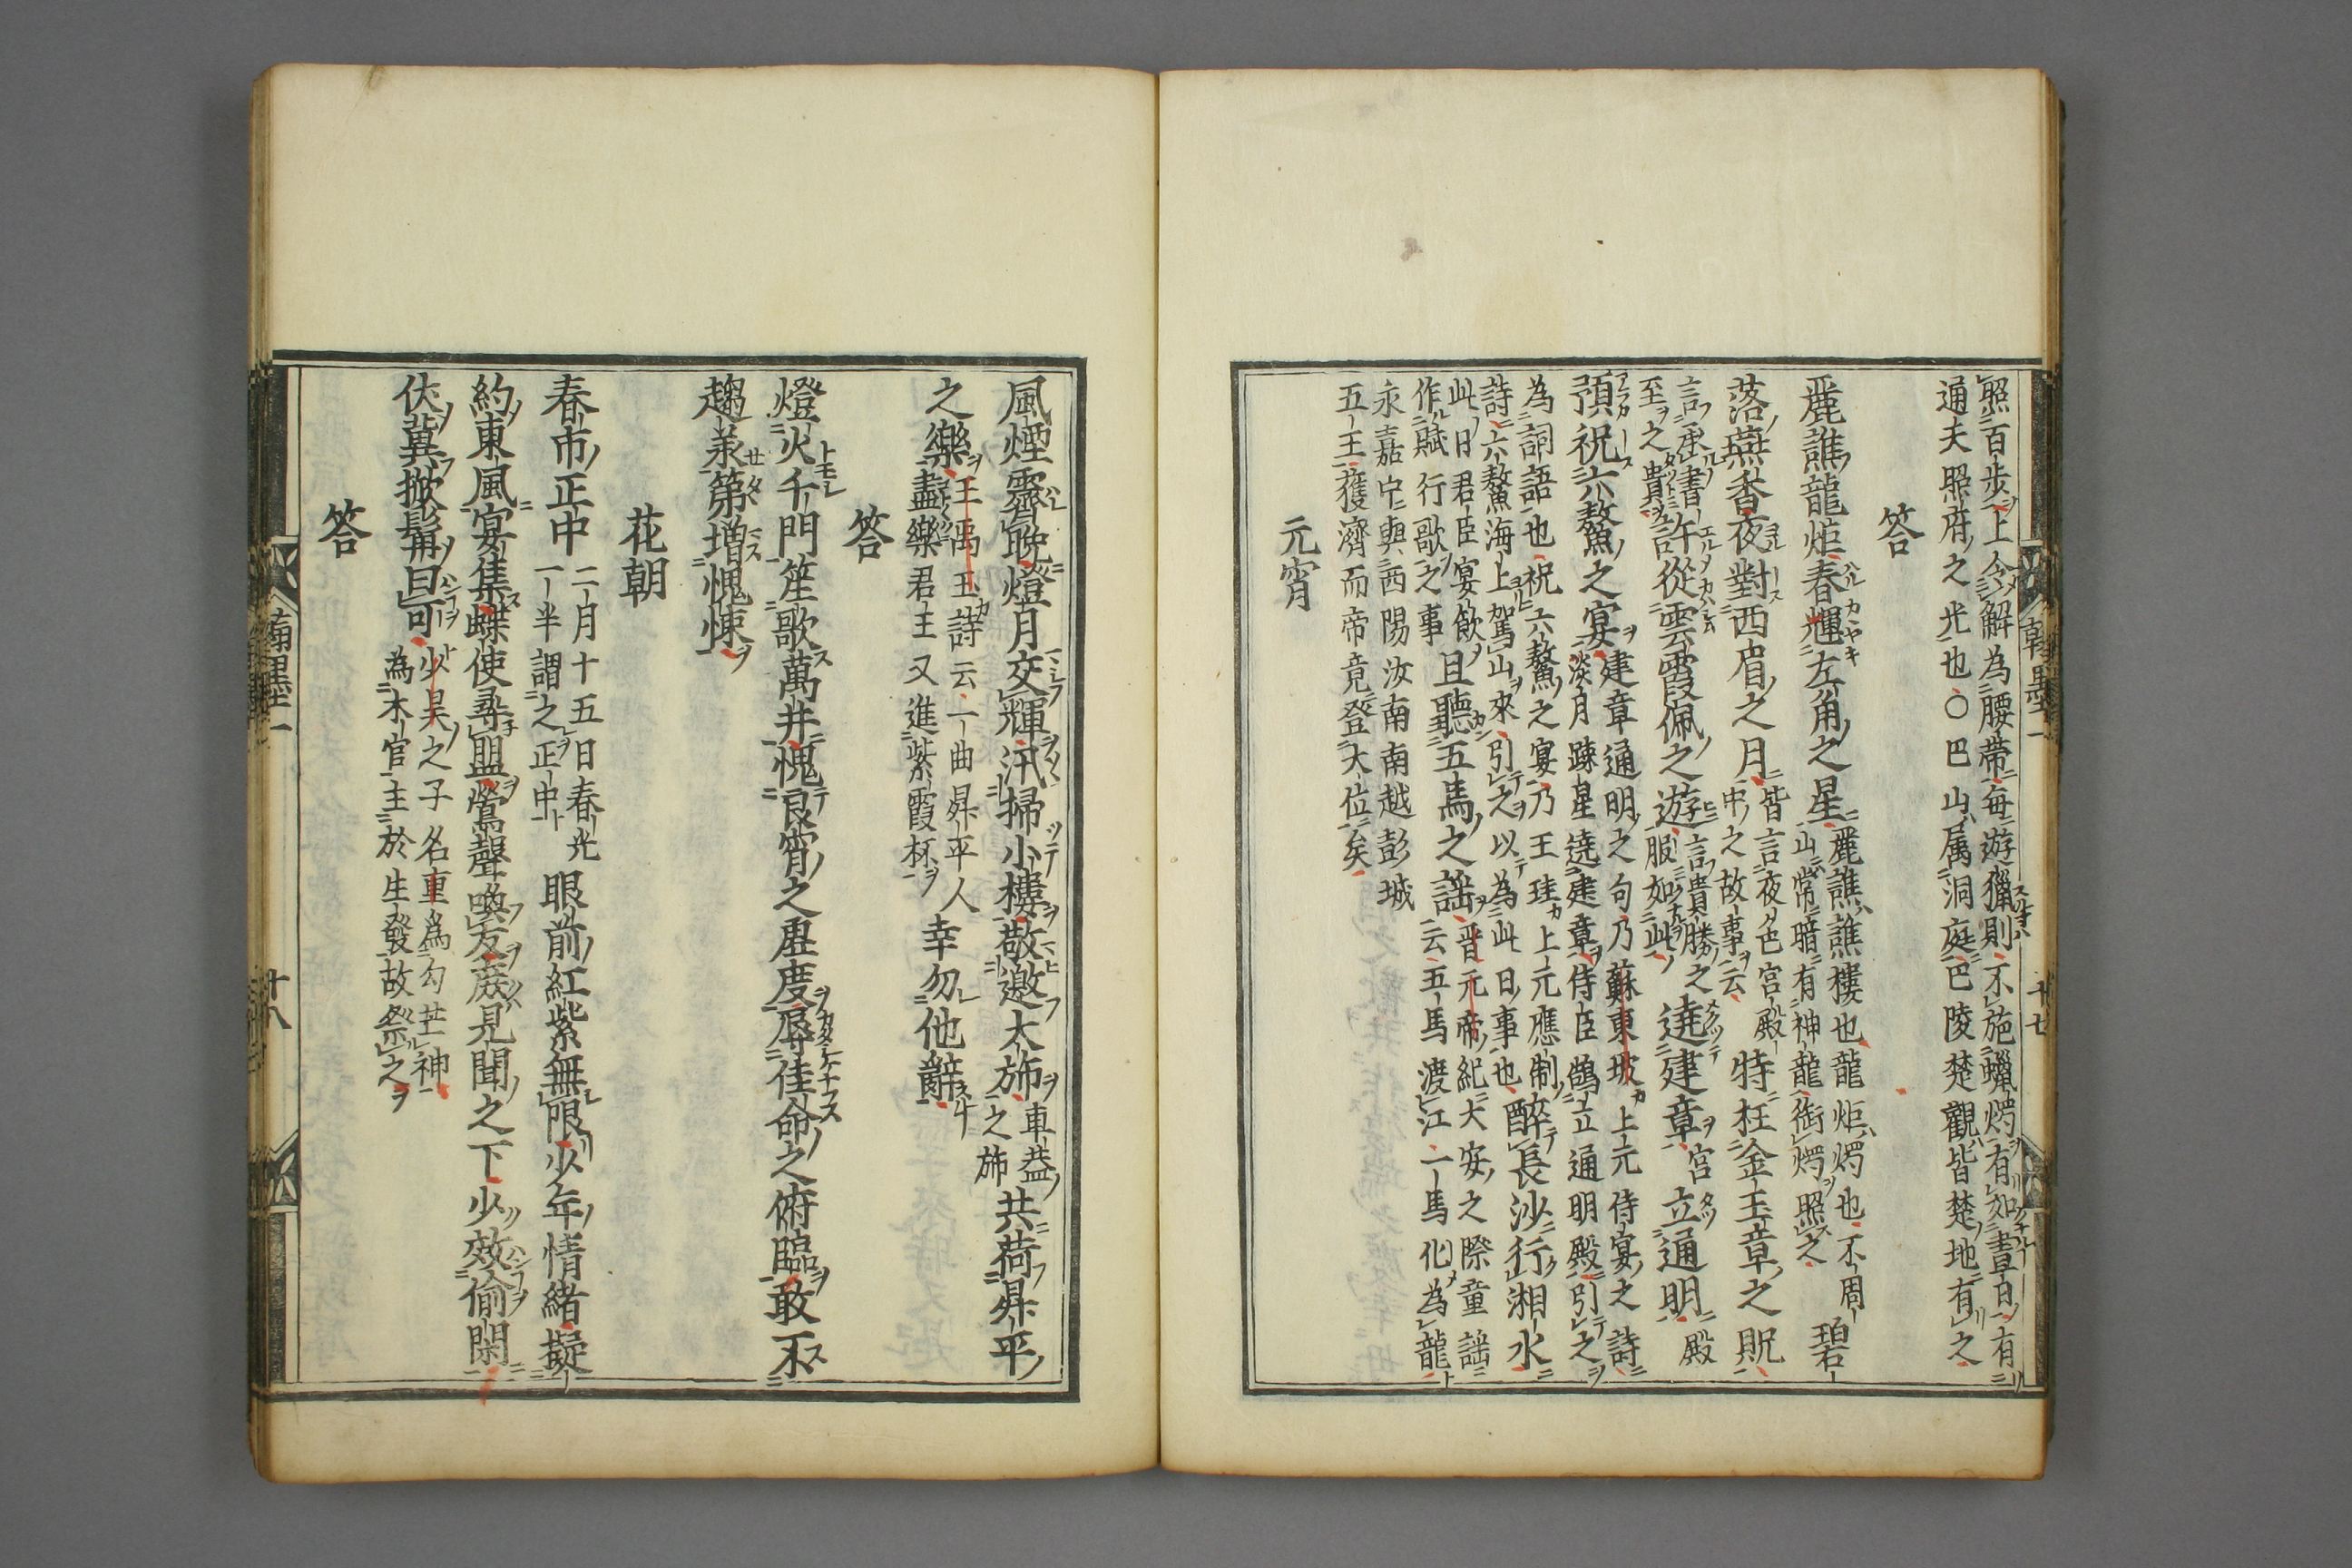 照百步上令解為腰帶每遊獵則不施蠟燭有如晝日有
通夫照府之光也○巴山属洞庭巴陵楚觀皆楚地有之
答
麗譙龍炬春輝左角之星
麗譙譙樓也龍炬燭也不周
山常暗有神龍銜燭照之
碧
落蕪香夜對西眉之月
皆言夜色宮殿
中之故事云
特枉金玉章之貺
言承書
至之貴
許從雲霞佩之遊
言貴勝之
服如此
遶建章
宮
立通明
殿
預祝六鰲之宴
建章通明之句乃蘇東坡上元侍宴之詩
淡月疎星遶建章侍臣鵠立通明殿引之
為詞語也祝六鰲之宴乃王珪上元應制
詩六鰲海上駕山來引之以為此日事也
醉長沙行湘水
此日君臣宴飲
作賦行歌之事
且聽五馬之謡
晋元帝紀大安之際童謡
云五馬渡江一馬化為龍
永嘉中與西陽汝南南越彭城
五王獲濟而帝竟登大位矣
元宵
翰墨一
十七
風煙霽晩燈月交輝汛掃小樓敬邀大斾
車葢
之斾
共荷昇平
之樂
王禹玉詩云一曲昇平人
盡樂君王又進紫霞杯
幸勿他辭
答
燈火千門笙歌萬井愧良宵之虚度辱佳命之俯臨敢不
趨羕第増愧悚
花朝
春市正中
二月十五日春光
一半謂之正中
眼前紅紫無限少年情緒擬
約東風宴集蝶使尋盟鶯聲喚友庶見聞之下少效偷閑
伏冀掀髯曰可
少昊之子名重為勾芒神
為木官主於生發故祭之
答
翰墨一
十八